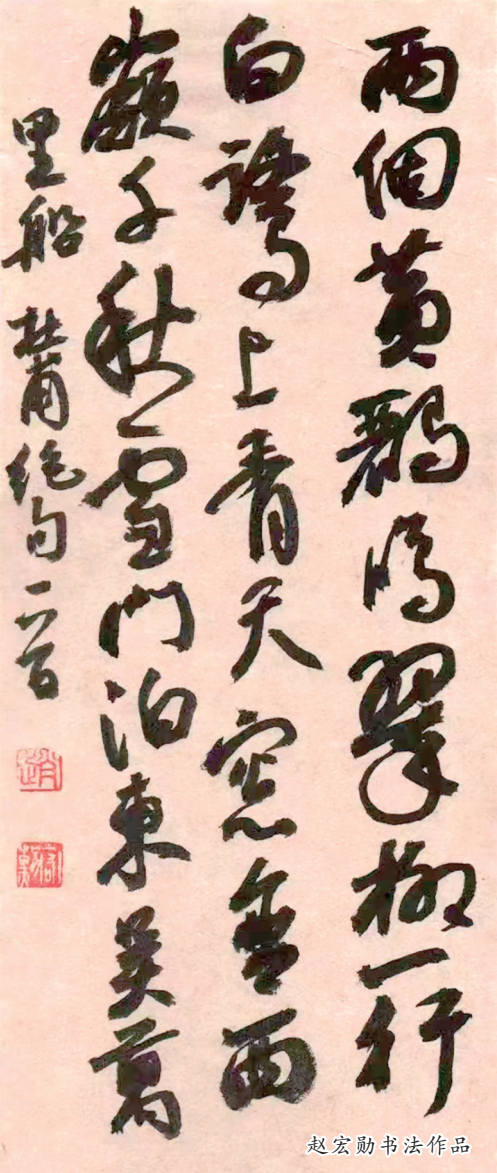 兩個黄鸝鳴翠柳一行
白鷺上青天窓含西
嶺千秋雪門泊東吴萬
里船 杜甫绝句一首
趙
赵宏勋书法作品